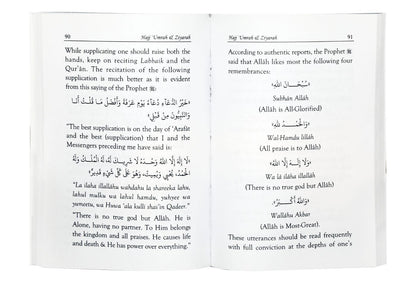 90 Hajj 'Umrah & Ziyarah
While supplicating one should raise both the
hands, keep on reciting Labbaik and the
Qur'ân. The recitation of the following
supplication is much better as it is evident
from this saying of the Prophet ﷺ
«خَيْرُ الدُّعَاءِ دُعَاءُ يَوْمِ عَرَفَةَ وَأَفْضَلُ مَا قُلْتُ أَنَا
وَالنَّبِيُّونَ مِنْ قَبْلِي»
"The best supplication is on the day of 'Arafât
and the best (supplication) that I and the
Messengers preceding me have said is:
«لَا إِلَهَ إِلَّا اللَّهُ وَحْدَهُ لَا شَرِيكَ لَهُ، لَهُ الْمُلْكُ وَلَهُ
الْحَمْدُ، يُحْيِي وَيُمِيتُ، وَهُوَ عَلَى كُلِّ شَيْءٍ قَدِيرٌ»
"La ilaha illallahu wahdahu la shareeka lahu,
lahul mulku wa lahul hamdu, yuhyee wa
yumeetu, wa Huwa 'ala kulli shai'in Qadeer."
"There is no true god but Allâh. He is
Alone, having no partner. To Him belongs
the kingdom and all praises. He causes life
and death & He has power over everything."
Hajj 'Umrah & Ziyarah 91
According to authentic reports, the Prophet ﷺ
said that Allâh likes most the following four
remembrances:
«سُبْحَانَ اللَّهِ»
Subhân Allâh
(Allâh is All-Glorified)
«وَالْحَمْدُ لِلَّهِ»
Wal-Hamdu lillâh
(All praise is to Allâh)
«وَلَا إِلَهَ إِلَّا اللَّهُ»
Wa lâ ilâha illallâh
(There is no true god but Allâh)
«وَاللَّهُ أَكْبَرُ»
Wallâhu Akbar
(Allâh is Most-Great).
These utterances should be read frequently
with full conviction at the depths of one's